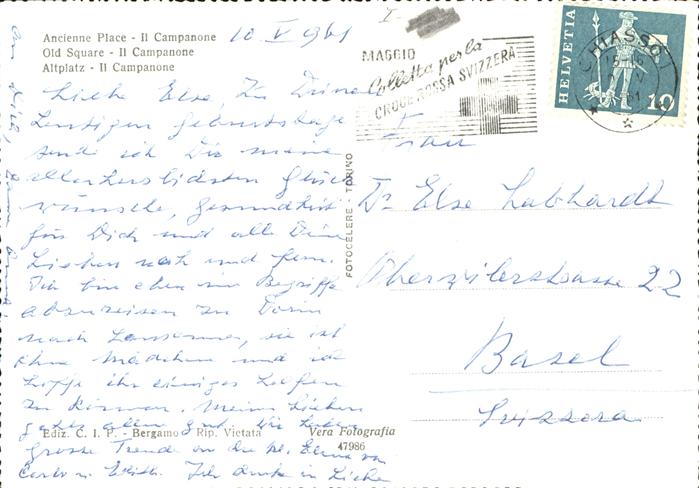 Ancienne Place - Il Campanone
Old Square - Il Campanone
Altplatz - Il Campanone
10 V 961
MAGGIO
Colletta per la
CROCE ROSSA SVIZZERA
HELVETIA
10
CHIASSO 1
Liebe Else, Zu Deinem
heutigen Geburtstage
sende ich Dir meine
allerherzlichsten Glück
wünsche, Gesundheit
für Dich und alle Deine
Lieben nah und fern.
bin eben im Begriffe
abzureisen zu
nach Lausanne, sie ist
ohne Mädchen und ich
hoffe ihr einiges helfen
zu können. Meinen Lieben
geht allen gut. Wir haben
grosse Freude an der kl. Elena von
Carlo u. Edith. Ich denke in Liebe
an Dich,
FOTOCELERE - TORINO
Frau
Dr Else Labhardt
Oberwilerstrasse 22
Basel
Svizzera
Ediz. C. I. P. - Bergamo - Rip. Vietata
Vera Fotografia
47986